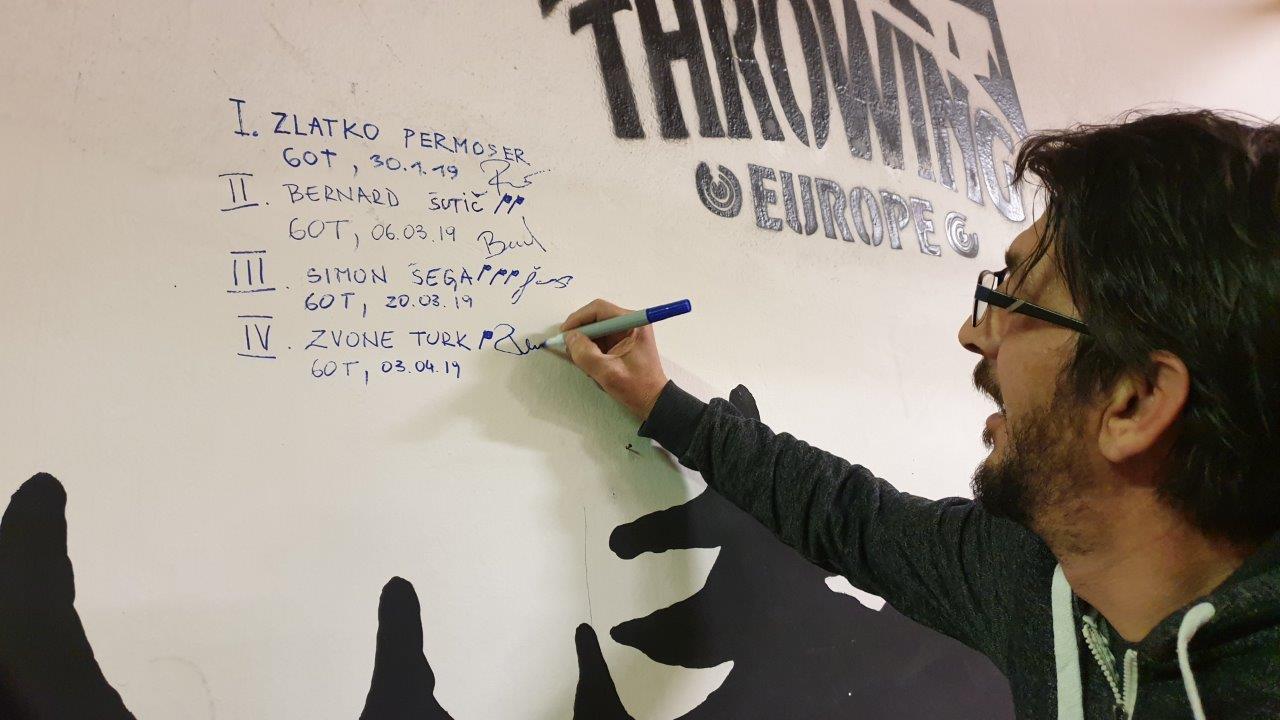 THROWING
EUROPE
I. ZLATKO PERMOSER
60T, 30.1.19
II. BERNARD ŠUTIČ PP
60T, 06.03.19
III. SIMON ŠEGA PPP
60T, 20.03.19
IV. ZVONE TURK P
60T, 03.04.19